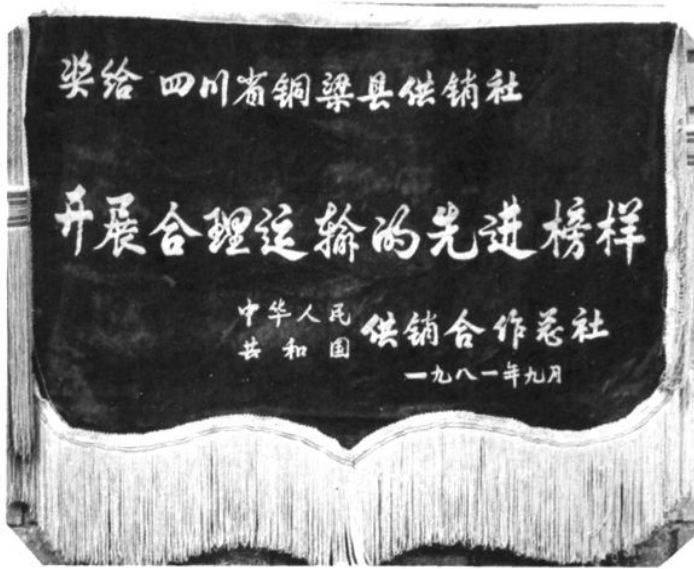 奖给 四川省铜梁县供销社
开展合理运输的先进榜样
中华人民
共和国 供销合作总社
一九八一年九月